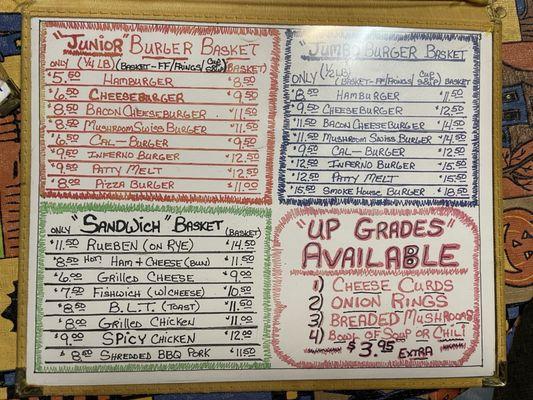 "JUNIOR" BURGER BASKET
ONLY (¼ LB) (BASKET-FF/FRINGS/CUP SOUP) BASKET)
$5.50 HAMBURGER $8.50
$6.50 CHEESEBURGER $9.50
$8.50 BACON CHEESEBURGER $11.50
$8.50 MUSHROOM SWISS BURGER $11.50
$6.50 CAL-BURGER $9.50
$9.50 INFERNO BURGER $12.50
$9.50 PATTY MELT $12.50
$8.00 PIZZA BURGER $11.00
"JUMBO" BURGER BASKET
ONLY (½ LB) (BASKET-FF/FRINGS/CUP SOUP) BASKET
$8.50 HAMBURGER $11.50
$9.50 CHEESEBURGER $12.50
$11.50 BACON CHEESEBURGER $14.50
$11.50 MUSHROOM SWISS BURGER $14.50
$9.50 CAL-BURGER $12.50
$12.50 INFERNO BURGER $15.50
$12.50 PATTY MELT $15.50
$15.50 SMOKE HOUSE BURGER $18.50
"SANDWICH" BASKET
ONLY (BASKET)
$11.50 RUEBEN (ON RYE) $14.50
$8.50 HOT! HAM & CHEESE (BUN) $11.50
$6.00 GRILLED CHEESE $9.00
$7.50 FISHWICH (W/CHEESE) $10.50
$8.50 B.L.T. (TOAST) $11.50
$8.00 GRILLED CHICKEN $11.00
$9.00 SPICY CHICKEN $12.00
$8.50 SHREDDED BBQ PORK $11.50
"UP GRADES"
AVAILABLE
1) CHEESE CURDS
2) ONION RINGS
3) BREADED MUSHROOMS
4) BOWL OF SOUP OR CHILI
$3.95 EXTRA